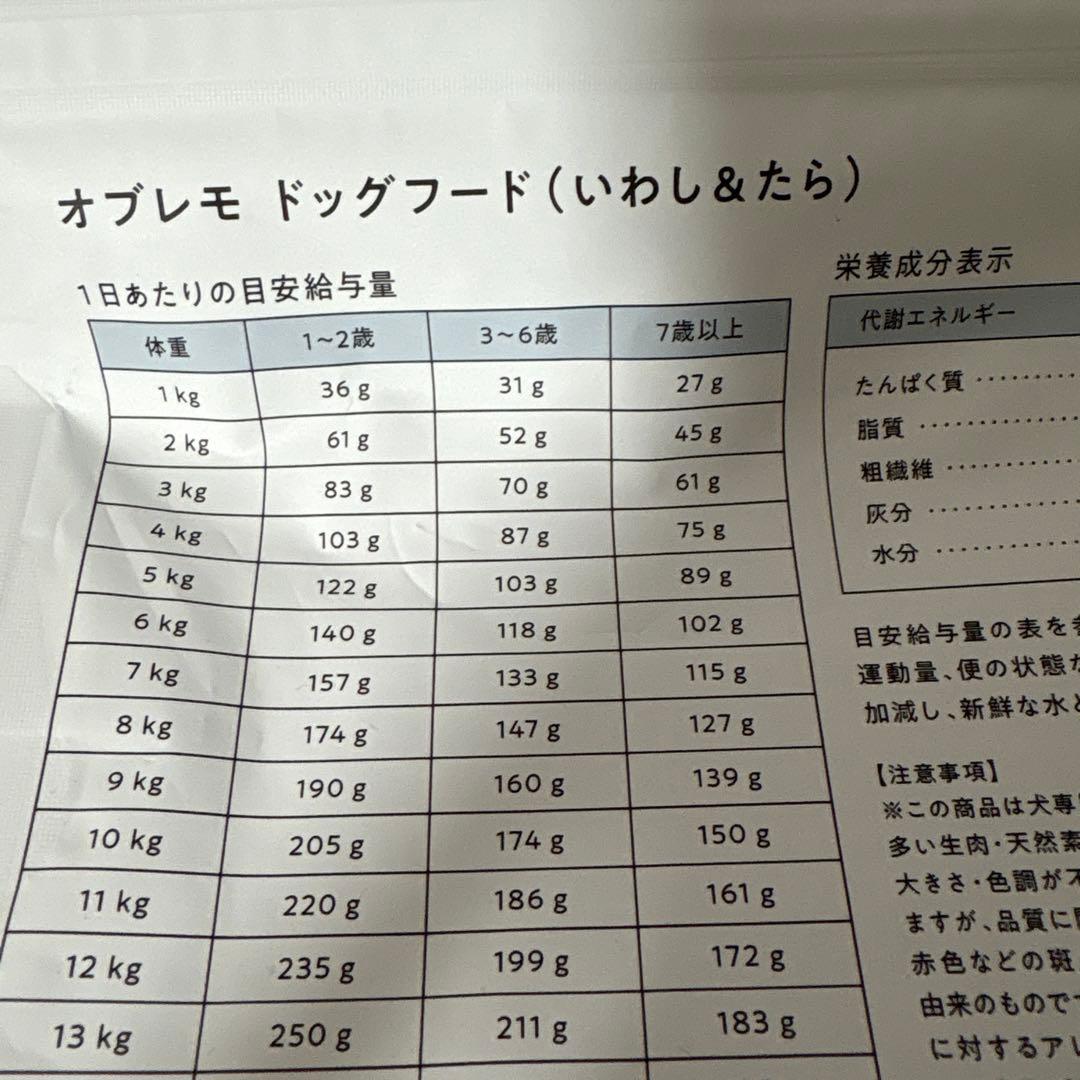 オブレモ ドッグフード(いわし&たら)
1日あたりの目安給与量
体重 1~2歳 3~6歳 7歳以上
1 kg 36 g 31 g 27 g
2 kg 61 g 52 g 45 g
3 kg 83 g 70 g 61 g
4 kg 103 g 87 g 75 g
5 kg 122 g 103 g 89 g
6 kg 140 g 118 g 102 g
7 kg 157 g 133 g 115 g
8 kg 174 g 147 g 127 g
9 kg 190 g 160 g 139 g
10 kg 205 g 174 g 150 g
11 kg 220 g 186 g 161 g
12 kg 235 g 199 g 172 g
13 kg 250 g 211 g 183 g
栄養成分表示
代謝エネルギー
たんぱく質
脂質
粗繊維
灰分
水分
目安給与量の表を
運動量、便の状態
加減し、新鮮な水と
【注意事項】
※この商品は犬専
多い生肉・天然素
大きさ・色調が不
ますが、品質に
赤色などの斑
由来のもので
に対するアレ